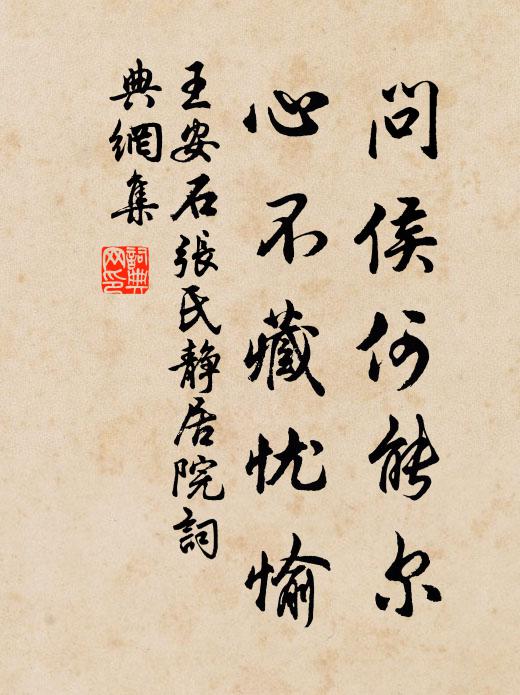 問侯何能尔
心不藏忧愉
王安石張氏靜居院詞
典網集
詞典
网印